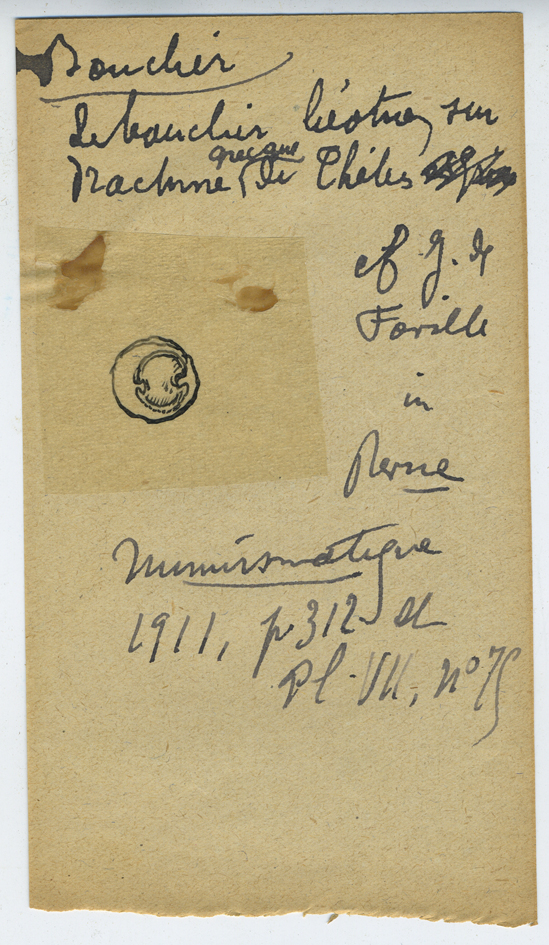 Bouclier
Le bouclier béotien sur
drachme grecque de Thèbes
cf J. de
Foville
in
Revue
Numismatique
1911, p 312 et
Pl. VII, n° 75